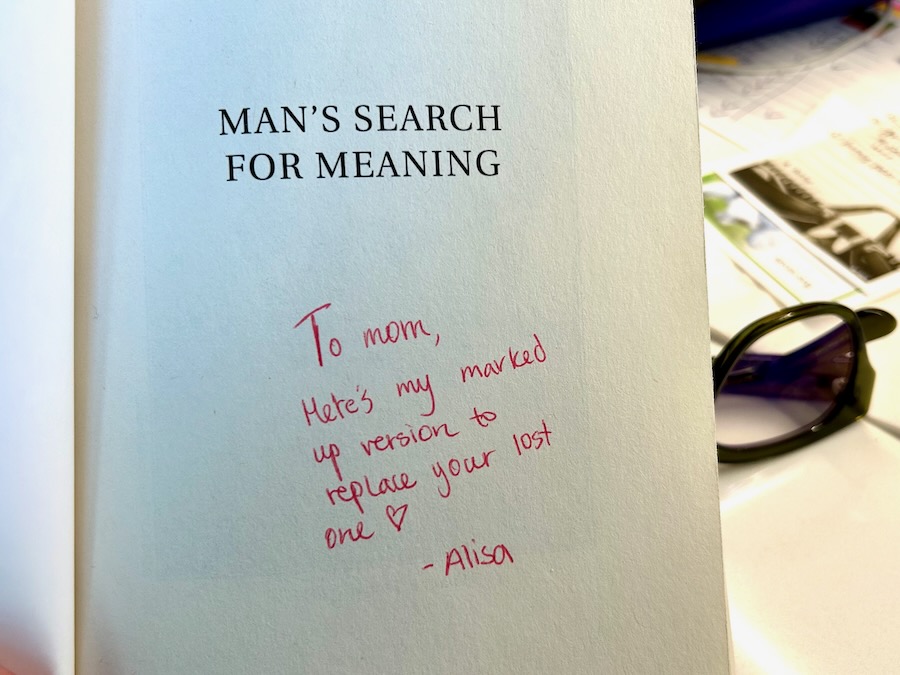 MAN'S SEARCH
FOR MEANING
To mom,
Here's my marked
up version to
replace your lost
one ♡
- Alisa